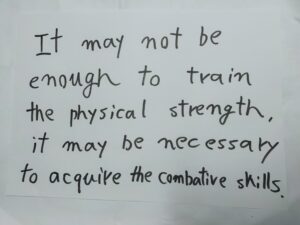 It may not be
enough to train
the physical strength,
it may be necessary
to acquire the combative skills.